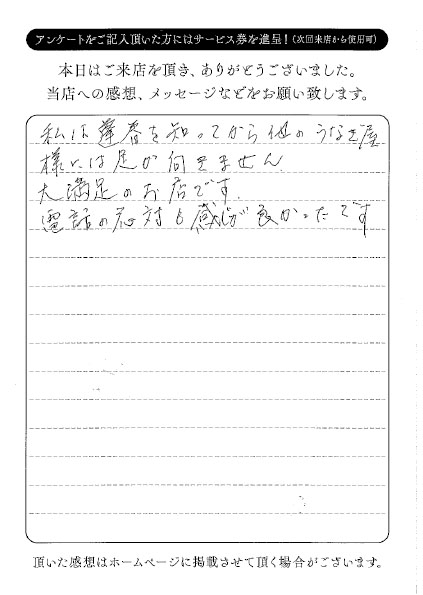 アンケートをご記入頂いた方にはサービス券を進呈!(次回来店から使用可)
本日はご来店を頂き、ありがとうございました。
当店への感想、メッセージなどをお願い致します。
私は蓮春を知ってから他のうなぎ屋
様には足が向きません
大満足のお店です.
電話の応対も感じが良かったです
頂いた感想はホームページに掲載させて頂く場合がございます。